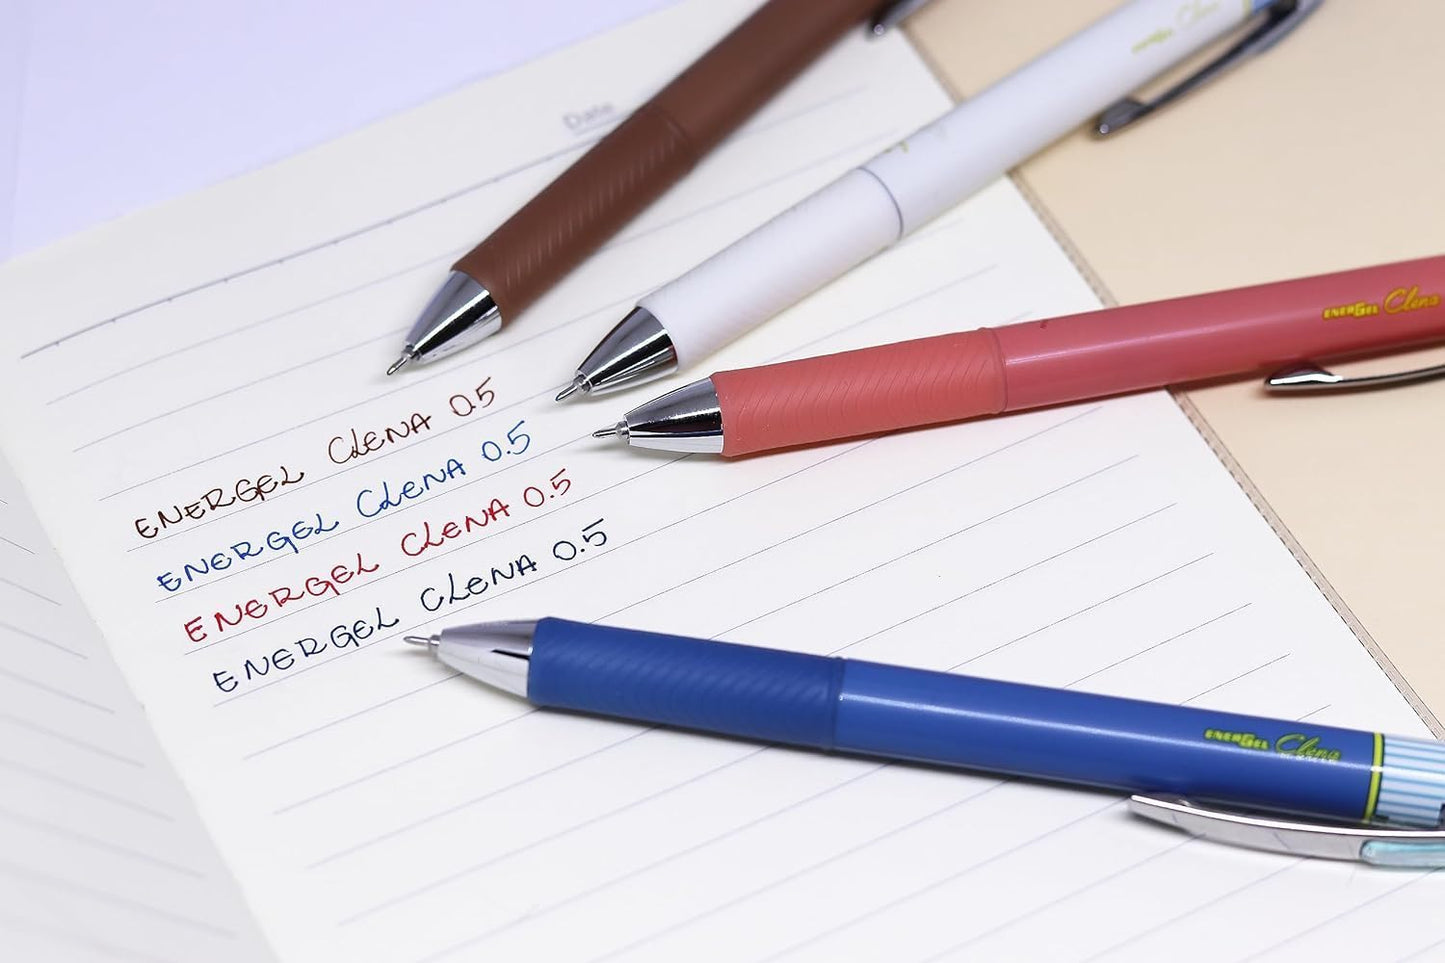 Date
ENERGEL Clena
ENERGEL CLENA 0.5
ENERGEL CLENA 0.5
ENERGEL CLENA 0.5
ENERGEL CLENA 0.5
ENERGEL Clena